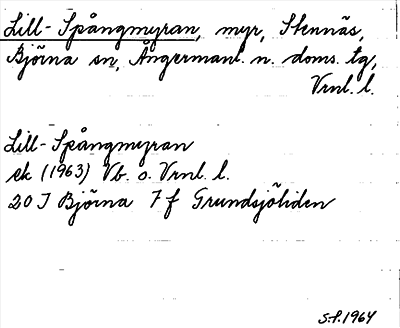 Lill-Spångmyran, myr, Stennäs,
Björna sn, Ångermanl. n. doms. tg,
Vrnl. l.
Lill-Spångmyran
ek (1963) Vb. o. Vrnl. l.
20 J Björna 7 f Grundsjöliden
S.P. 1964